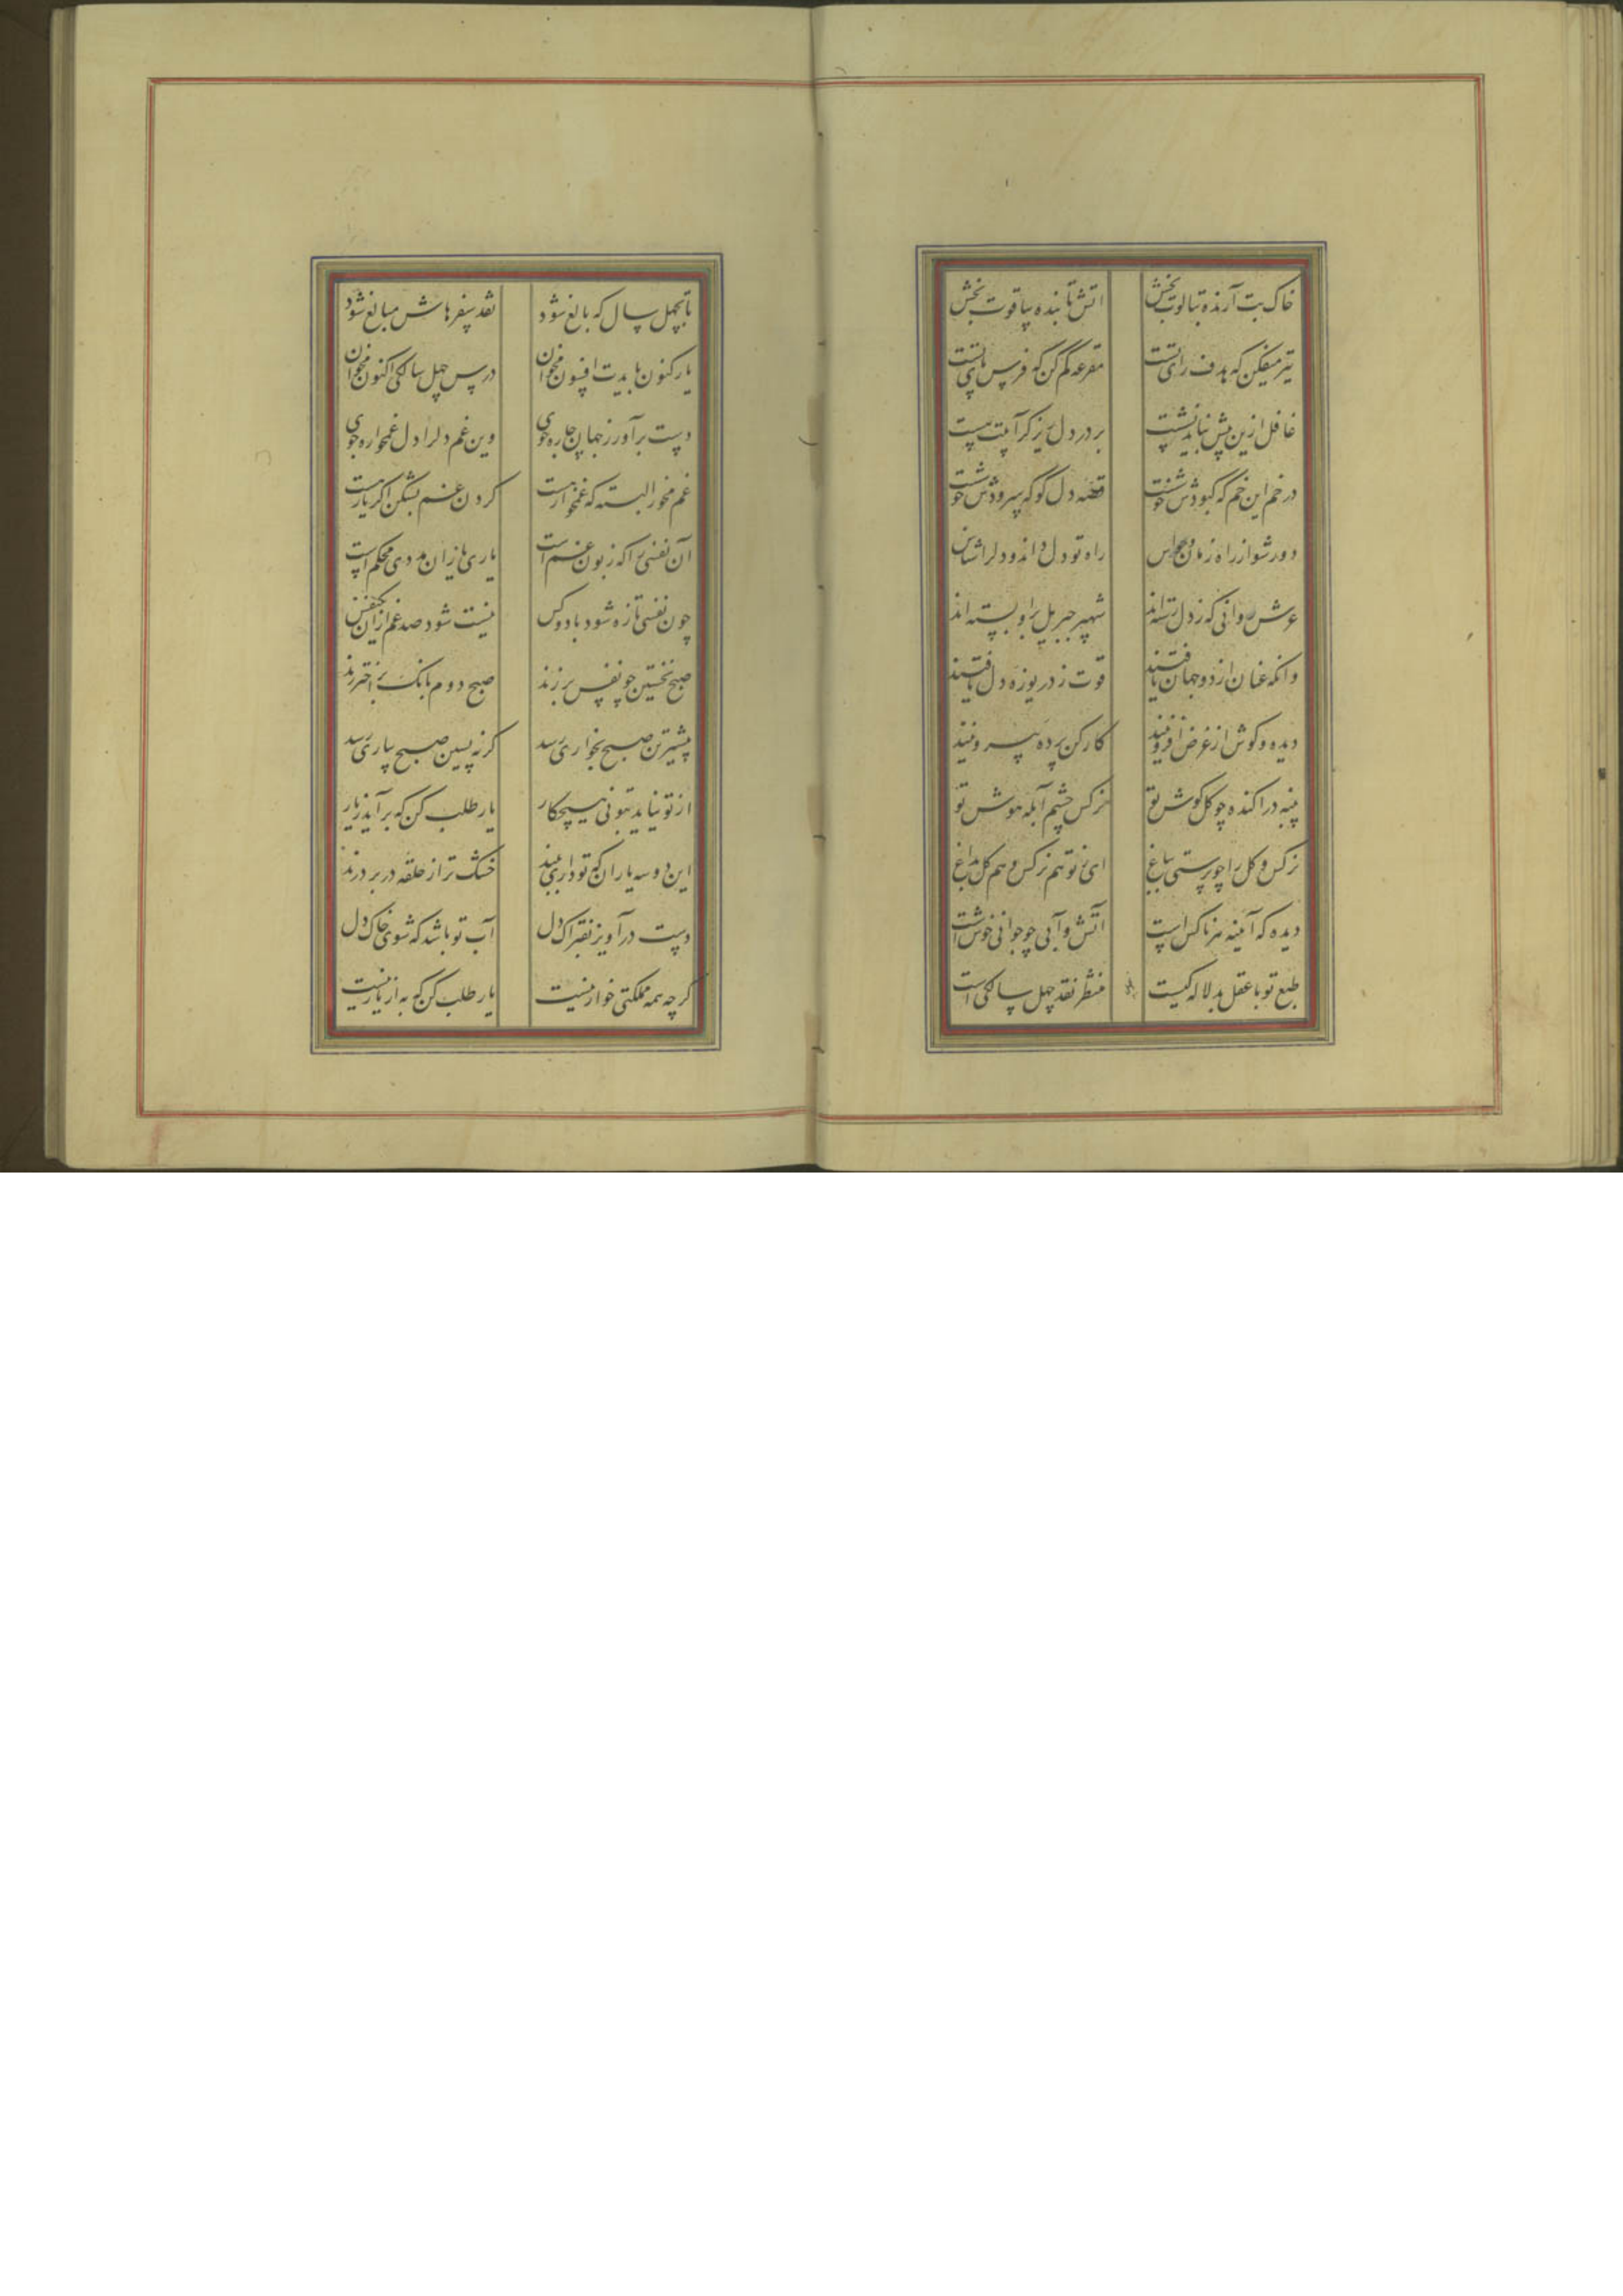 خاک تب آرنده بتابوت بخش آتش تابنده بیاقوت بخش
تیر میفکن که هدف رای تست مقرعه کم کن که فرس پای تست
غافل ازین بیش نباید نشست بر در دل ریز گر آبیت هست
در خم این خم که کبودش خوشست قصه دل گو که سرودش خوشست
دور شو از راه زنان حواس راه تو دل داند و دل را شناس
عرش روانی که ز دل رسته‌اند شهپر جبریل براو بسته‌اند
وانکه عنان از دو جهان یافتند قوت ز دریوزه دل یافتند
دیده و گوش از غرض افزونیند کارکن پرده بیرونیند
پنبه در آکنده چو گل گوش تو نرگس چشم آبله هوش تو
نرگس و گل را چو پرستی بباغ ای ز تو هم نرگس و هم گل بداغ
دیده که آینه هر ناکس است آتش و آبی چو جوانی خوش است
طبع تو با عقل بدلاله کیست منتظر نقد چهل سالگی است
تا بچهل سال که بالغ شود نقد سفرهاش مبالغ شود
یار کنون بایدت افسون مخوان درس چهل سالگی اکنون مخوان
دست برآور ز میان چاره جوی وین غم دل را دل غمخواره جوی
غم مخور البته که غمخوار هست گردن غم بشکن اگر یار هست
آن نفسی را که زبون غم است یاری یاران مددی محکم است
چون نفسی تازه شود با دو کس نیست شود صد غم ازان یک نفس
صبح نخستین چو نفس برزند صبح دوم بانگ بر اختر زند
پیشترین صبح بخواری رسد گر نه پسین صبح بیاری رسد
از تو نیاید بتوئی هیچ کار یار طلب کن که برآید ز یار
این دو سه یاران که تو داری ترند خشک‌تر از حلقه در بر درند
دست درآویز بفتراک دل آب تو باشد که شوی خاک دل
گرچه همه مملکتی خوار نیست یار طلب کن که به از یار نیست